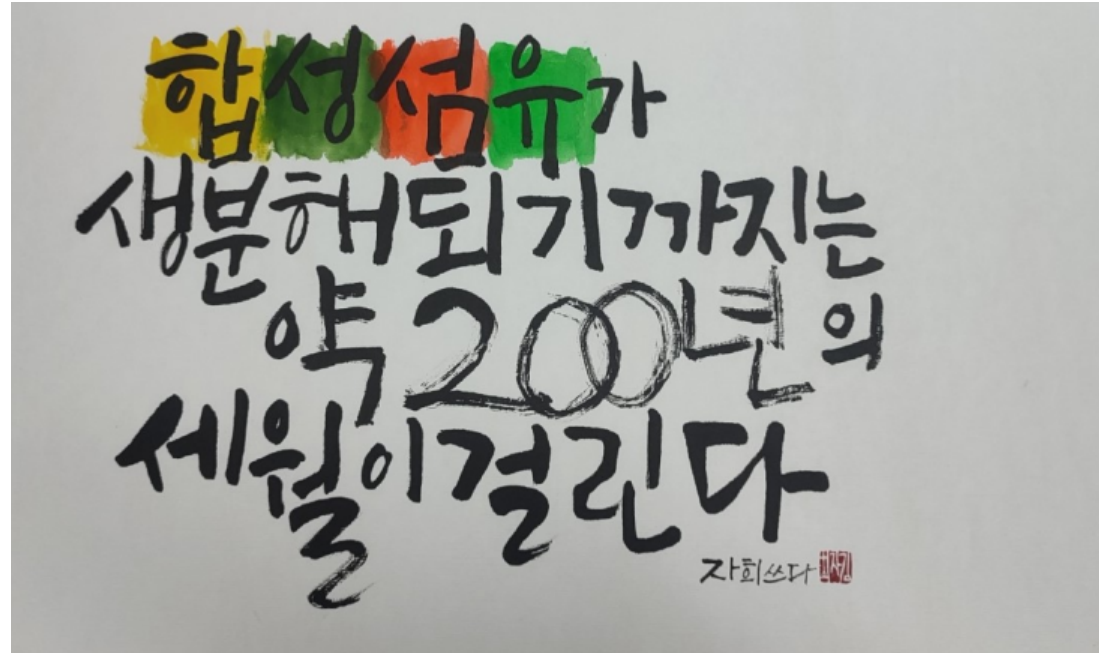 합성섬유가
생분해되기까지는
약 200년의
세월이걸린다
자회쓰다